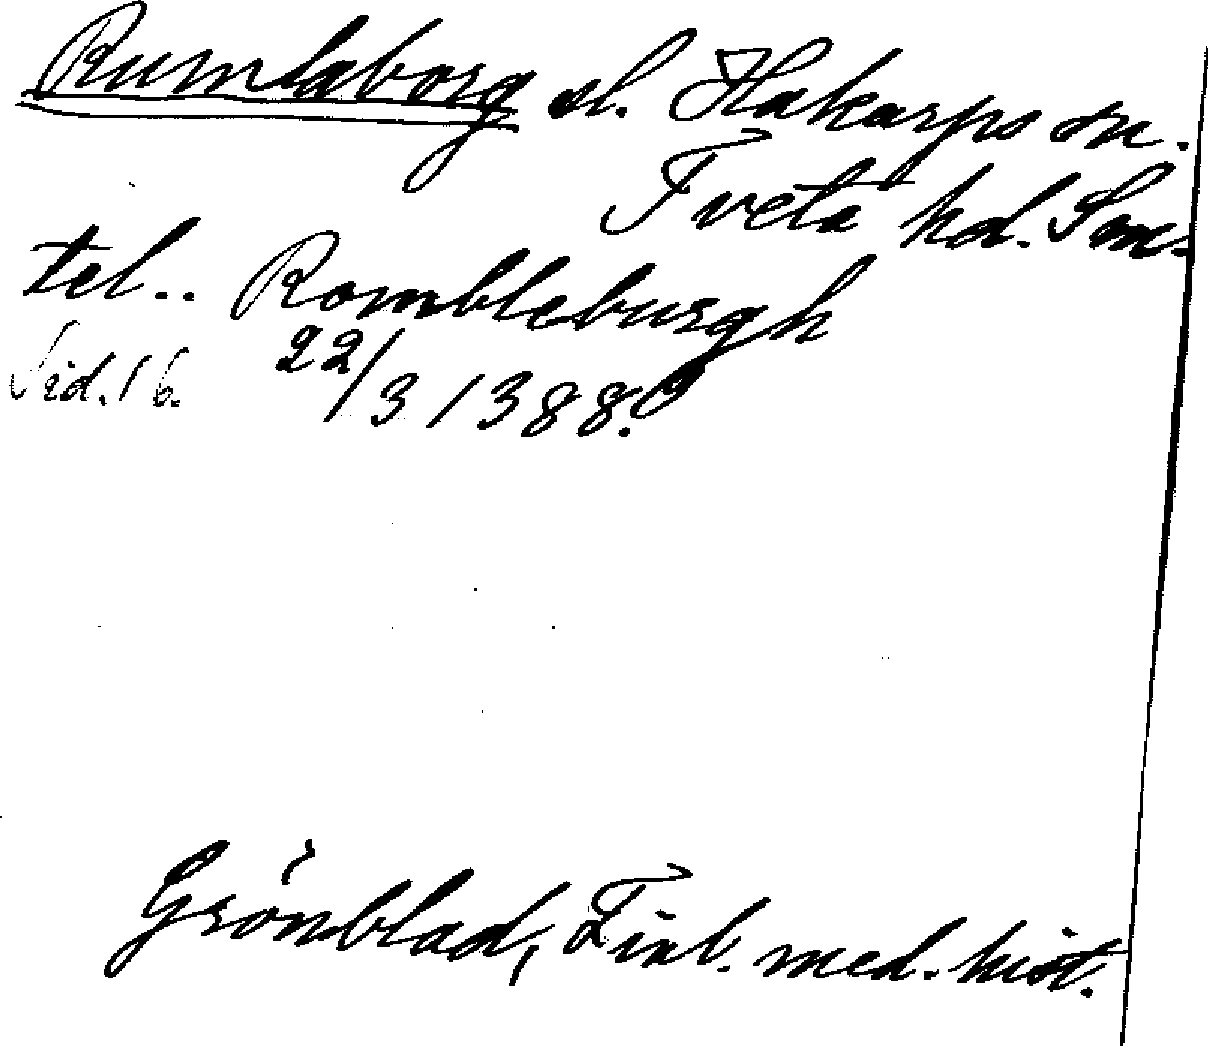 Rumlaborg sl. Hakarps sn.
Tveta hd. Sm.
tel.. Rombleburgh
Sid. 16. 22/3 1388.
Grönblad, Finl. med. hist.